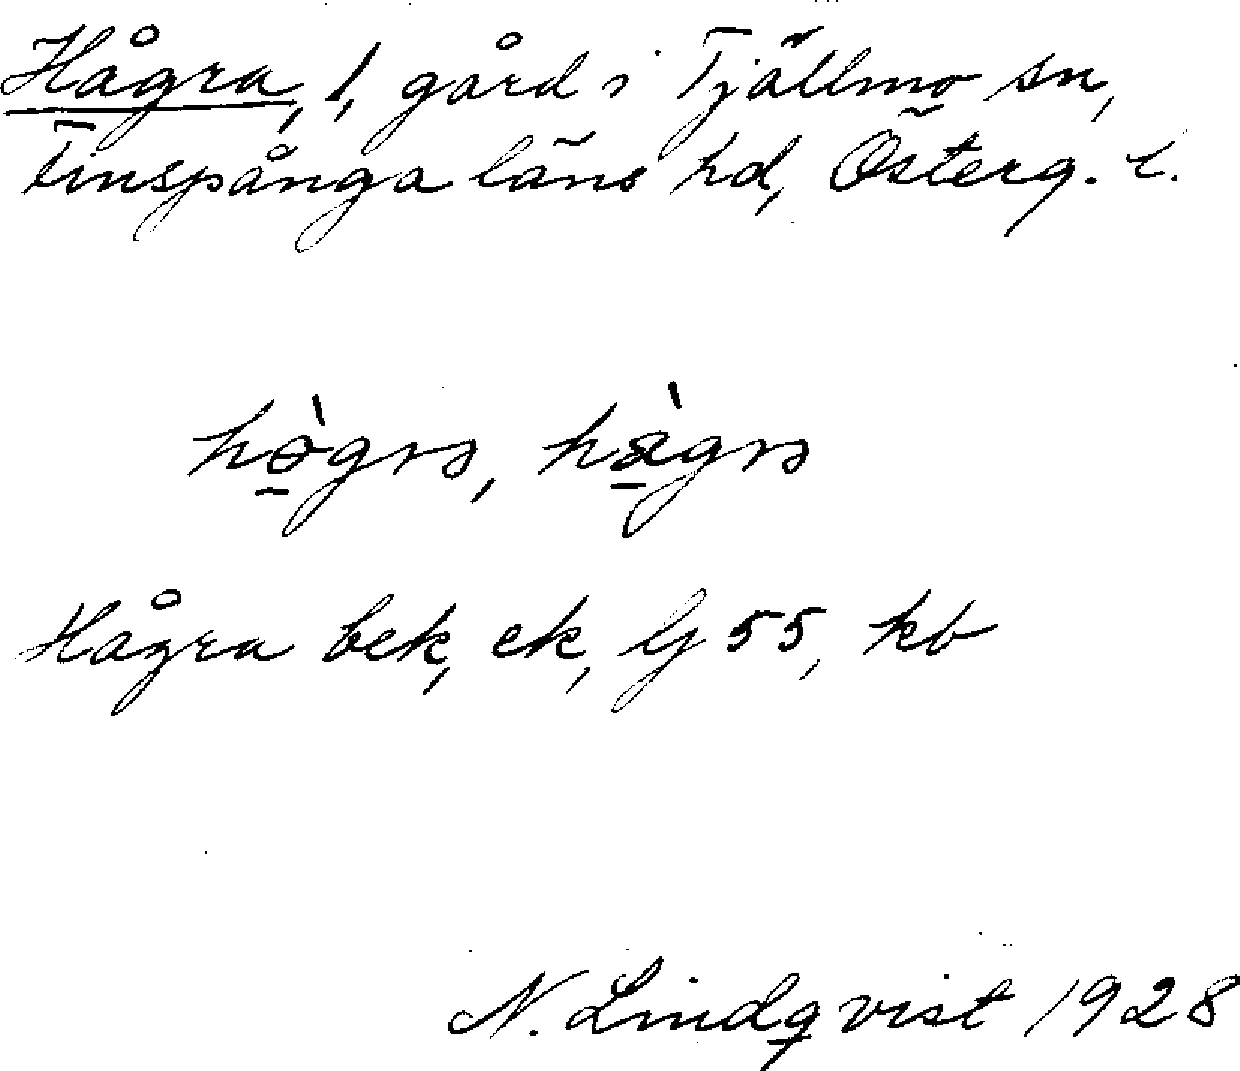 Hågra, 1, gård i Tjällmo sn,
Finspånga läns hd, Österg. l.
Hågra bek, ek, Gj 55, kb
N. Lindqvist 1928